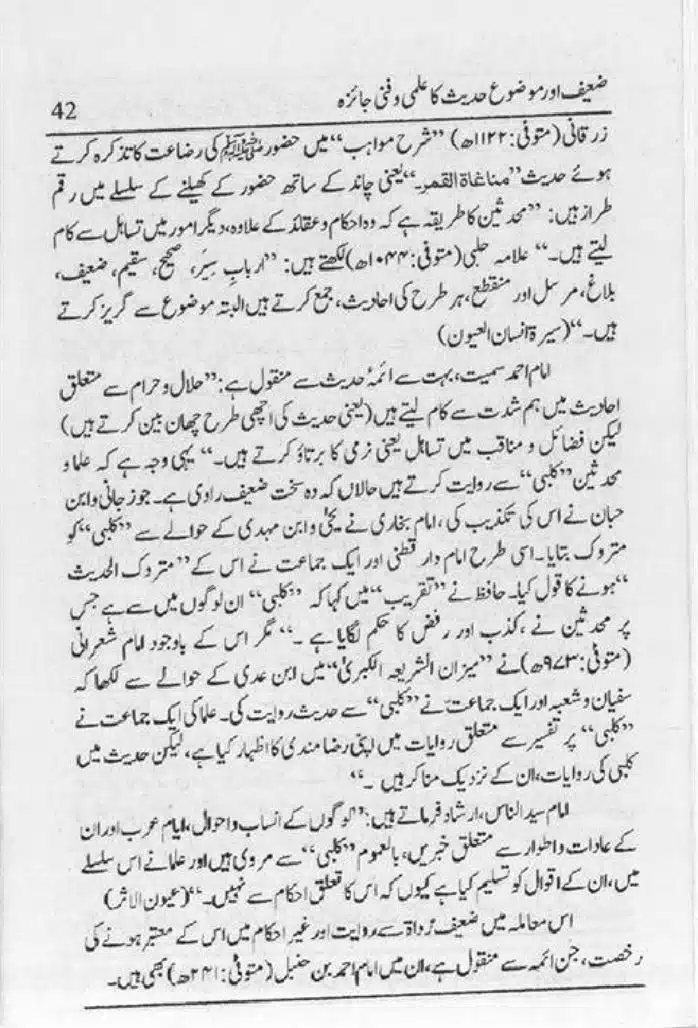 ضعیف اور موضوع حدیث کا علمی و فنی جائزہ
42
زرقانی (متوفی: ۱۱۲۲ھ) ”شرح مواہب“ میں حضور ﷺ کی رضاعت کا تذکرہ کرتے
ہوئے حدیث ”مناغاة القمر۔“ یعنی چاند کے ساتھ حضور کے کھیلنے کے سلسلے میں رقم
طراز ہیں: ”محدثین کا طریقہ ہے کہ وہ احکام و عقائد کے علاوہ، دیگر امور میں تساہل سے کام
لیتے ہیں۔“ علامہ حلبی (متوفی: ۱۰۴۴ھ) لکھتے ہیں: ”اربابِ سِیَر، صحیح، سقیم، ضعیف،
بلاغ، مرسل اور منقطع، ہر طرح کی احادیث، جمع کرتے ہیں البتہ موضوع سے گریز کرتے
ہیں۔“ (سیرۃ انسان العیون)
امام احمد سمیت، بہت سے ائمۂ حدیث سے منقول ہے: ”حلال و حرام سے متعلق
احادیث میں ہم شدت سے کام لیتے ہیں (یعنی حدیث کی اچھی طرح چھان بین کرتے ہیں)
لیکن فضائل و مناقب میں تساہل یعنی نرمی کا برتاؤ کرتے ہیں۔“ یہی وجہ ہے کہ علما و
محدثین ”کلبی“ سے روایت کرتے ہیں حالاں کہ وہ سخت ضعیف راوی ہے۔ جوزجانی و ابن
حبان نے اس کی تکذیب کی، امام بخاری نے یحییٰ و ابن مہدی کے حوالے سے ”کلبی“ کو
متروک بتایا۔ اسی طرح امام دار قطنی اور ایک جماعت نے اس کے ”متروک الحدیث
“ ہونے کا قول کیا۔ حافظ نے ”تقریب“ میں کہا کہ ”کلبی“ ان لوگوں میں سے ہے جس
پر محدثین نے، کذب اور رفض کا حکم لگایا ہے۔“ مگر اس کے باوجود امام شعرانی
(متوفی: ۹۷۳ھ) نے ”میزان الشریعہ الکبریٰ“ میں ابن عدی کے حوالے سے لکھا کہ
سفیان و شعبہ اور ایک جماعت نے ”کلبی“ سے حدیث روایت کی۔ علما کی ایک جماعت نے
”کلبی“ پر تفسیر سے متعلق روایات میں اپنی رضا مندی کا اظہار کیا ہے، لیکن حدیث میں
کلبی کی روایات، ان کے نزدیک مناکر ہیں۔“
امام سید الناس، ارشاد فرماتے ہیں: ”لوگوں کے انساب و احوال، ایام عرب اور ان
کے عادات و اطوار سے متعلق خبریں، بالعموم ”کلبی“ سے مروی ہیں اور علما نے اس سلسلے
میں، ان کے اقوال کو تسلیم کیا ہے کیوں کہ اس کا تعلق احکام سے نہیں۔“ (عیون الاثر)
اس معاملہ میں ضعیف رُواۃ سے روایت اور غیر احکام میں اس کے معتبر ہونے کی
رخصت، جن ائمہ سے منقول ہے، ان میں امام احمد بن حنبل (متوفی: ۲۴۱ھ) بھی ہیں۔